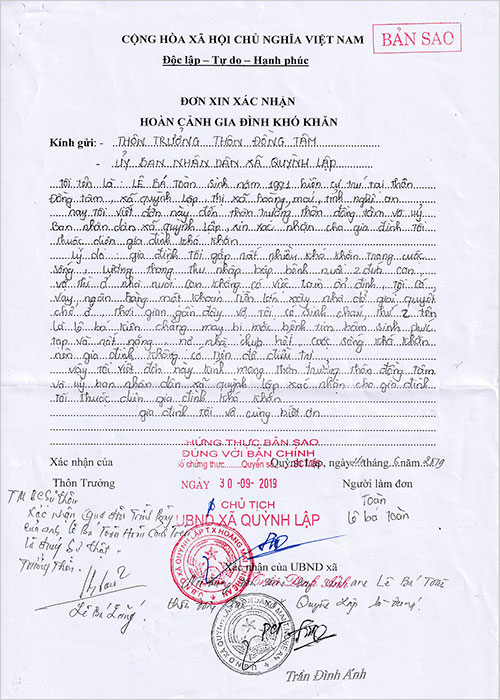 CỘNG HÒA XÃ HỘI CHỦ NGHĨA VIỆT NAM
BẢN SAO
Độc lập – Tự do – Hạnh phúc
ĐƠN XIN XÁC NHẬN
HOÀN CẢNH GIA ĐÌNH KHÓ KHĂN
Kính gửi: - THÔN TRƯỞNG THÔN ĐỒNG TÂM
- ỦY BAN NHÂN DÂN XÃ QUỲNH LẬP
Tôi tên là : LÊ BÁ Toàn Sinh năm 1991 hiện cư trú tại thôn
Đồng tâm, xã quỳnh lập, thị xã hoàng mai, tỉnh nghệ an
nay Tôi viết đơn này đến thôn trưởng thôn đồng tâm và uỷ
Ban nhân dân xã quỳnh Lập xin xác nhận cho gia đình tôi
Thuộc diện gia đình khó khăn
Lý do : gia đình Tôi gặp rất nhiều khó khăn trong cuộc
sống, Lương tháng thu nhập bấp bênh nuôi 2 đứa con
vợ thì ở nhà nuôi con không có việc làm ổn định, tôi có
vay ngân hàng một khoản tiền lớn xây nhà để giải quyết
chỗ ở thời gian gần đây vợ tôi có sinh cháu thứ 2 tên
là lê bá kiên chẳng may bị mắc bệnh tim bẩm sinh phức
tạp và rất nặng cuộc sống khó khăn
nên gia đình không có tiền để điều trị
vậy Tôi viết đơn này kính mong thôn trưởng thôn đồng tâm
và uỷ ban nhân dân xã quỳnh lập xác nhận cho gia đình
tôi thuộc diện gia đình khó khăn
gia đình tôi vô cùng biết ơn
CHỨNG THỰC BẢN SAO
ĐÚNG VỚI BẢN CHÍNH
Số chứng thực Quyển số
Xác nhận của
Quỳnh Lập, ngày tháng 6 năm 2019
Thôn Trưởng
NGÀY 30-09-2019
Người làm đơn
Toàn
Lê bá Toàn
CHỦ TỊCH
UBND XÃ QUỲNH LẬP
Xác nhận
là đúng sự thật.
Trưởng thôn
Lê Bá
Xác nhận của UBND xã
Lê Bá Toàn
Quỳnh Lập là đúng
Trần Đình Ánh